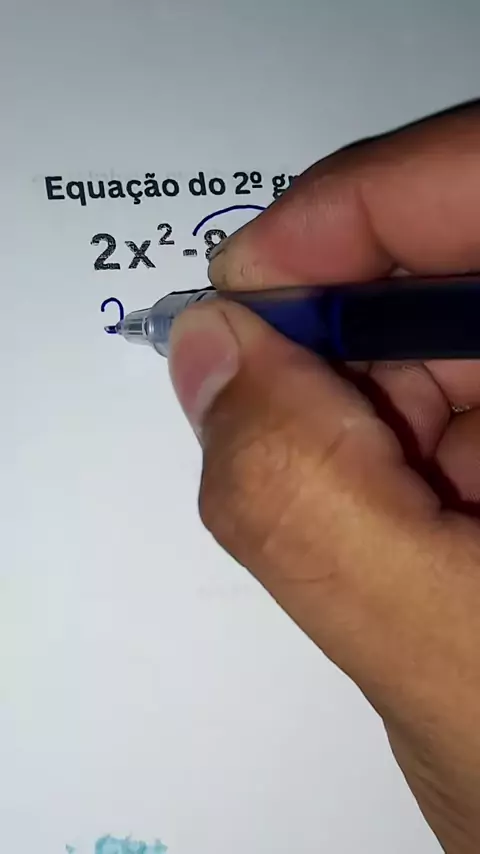 Equação do 2º
2x² - 8
2